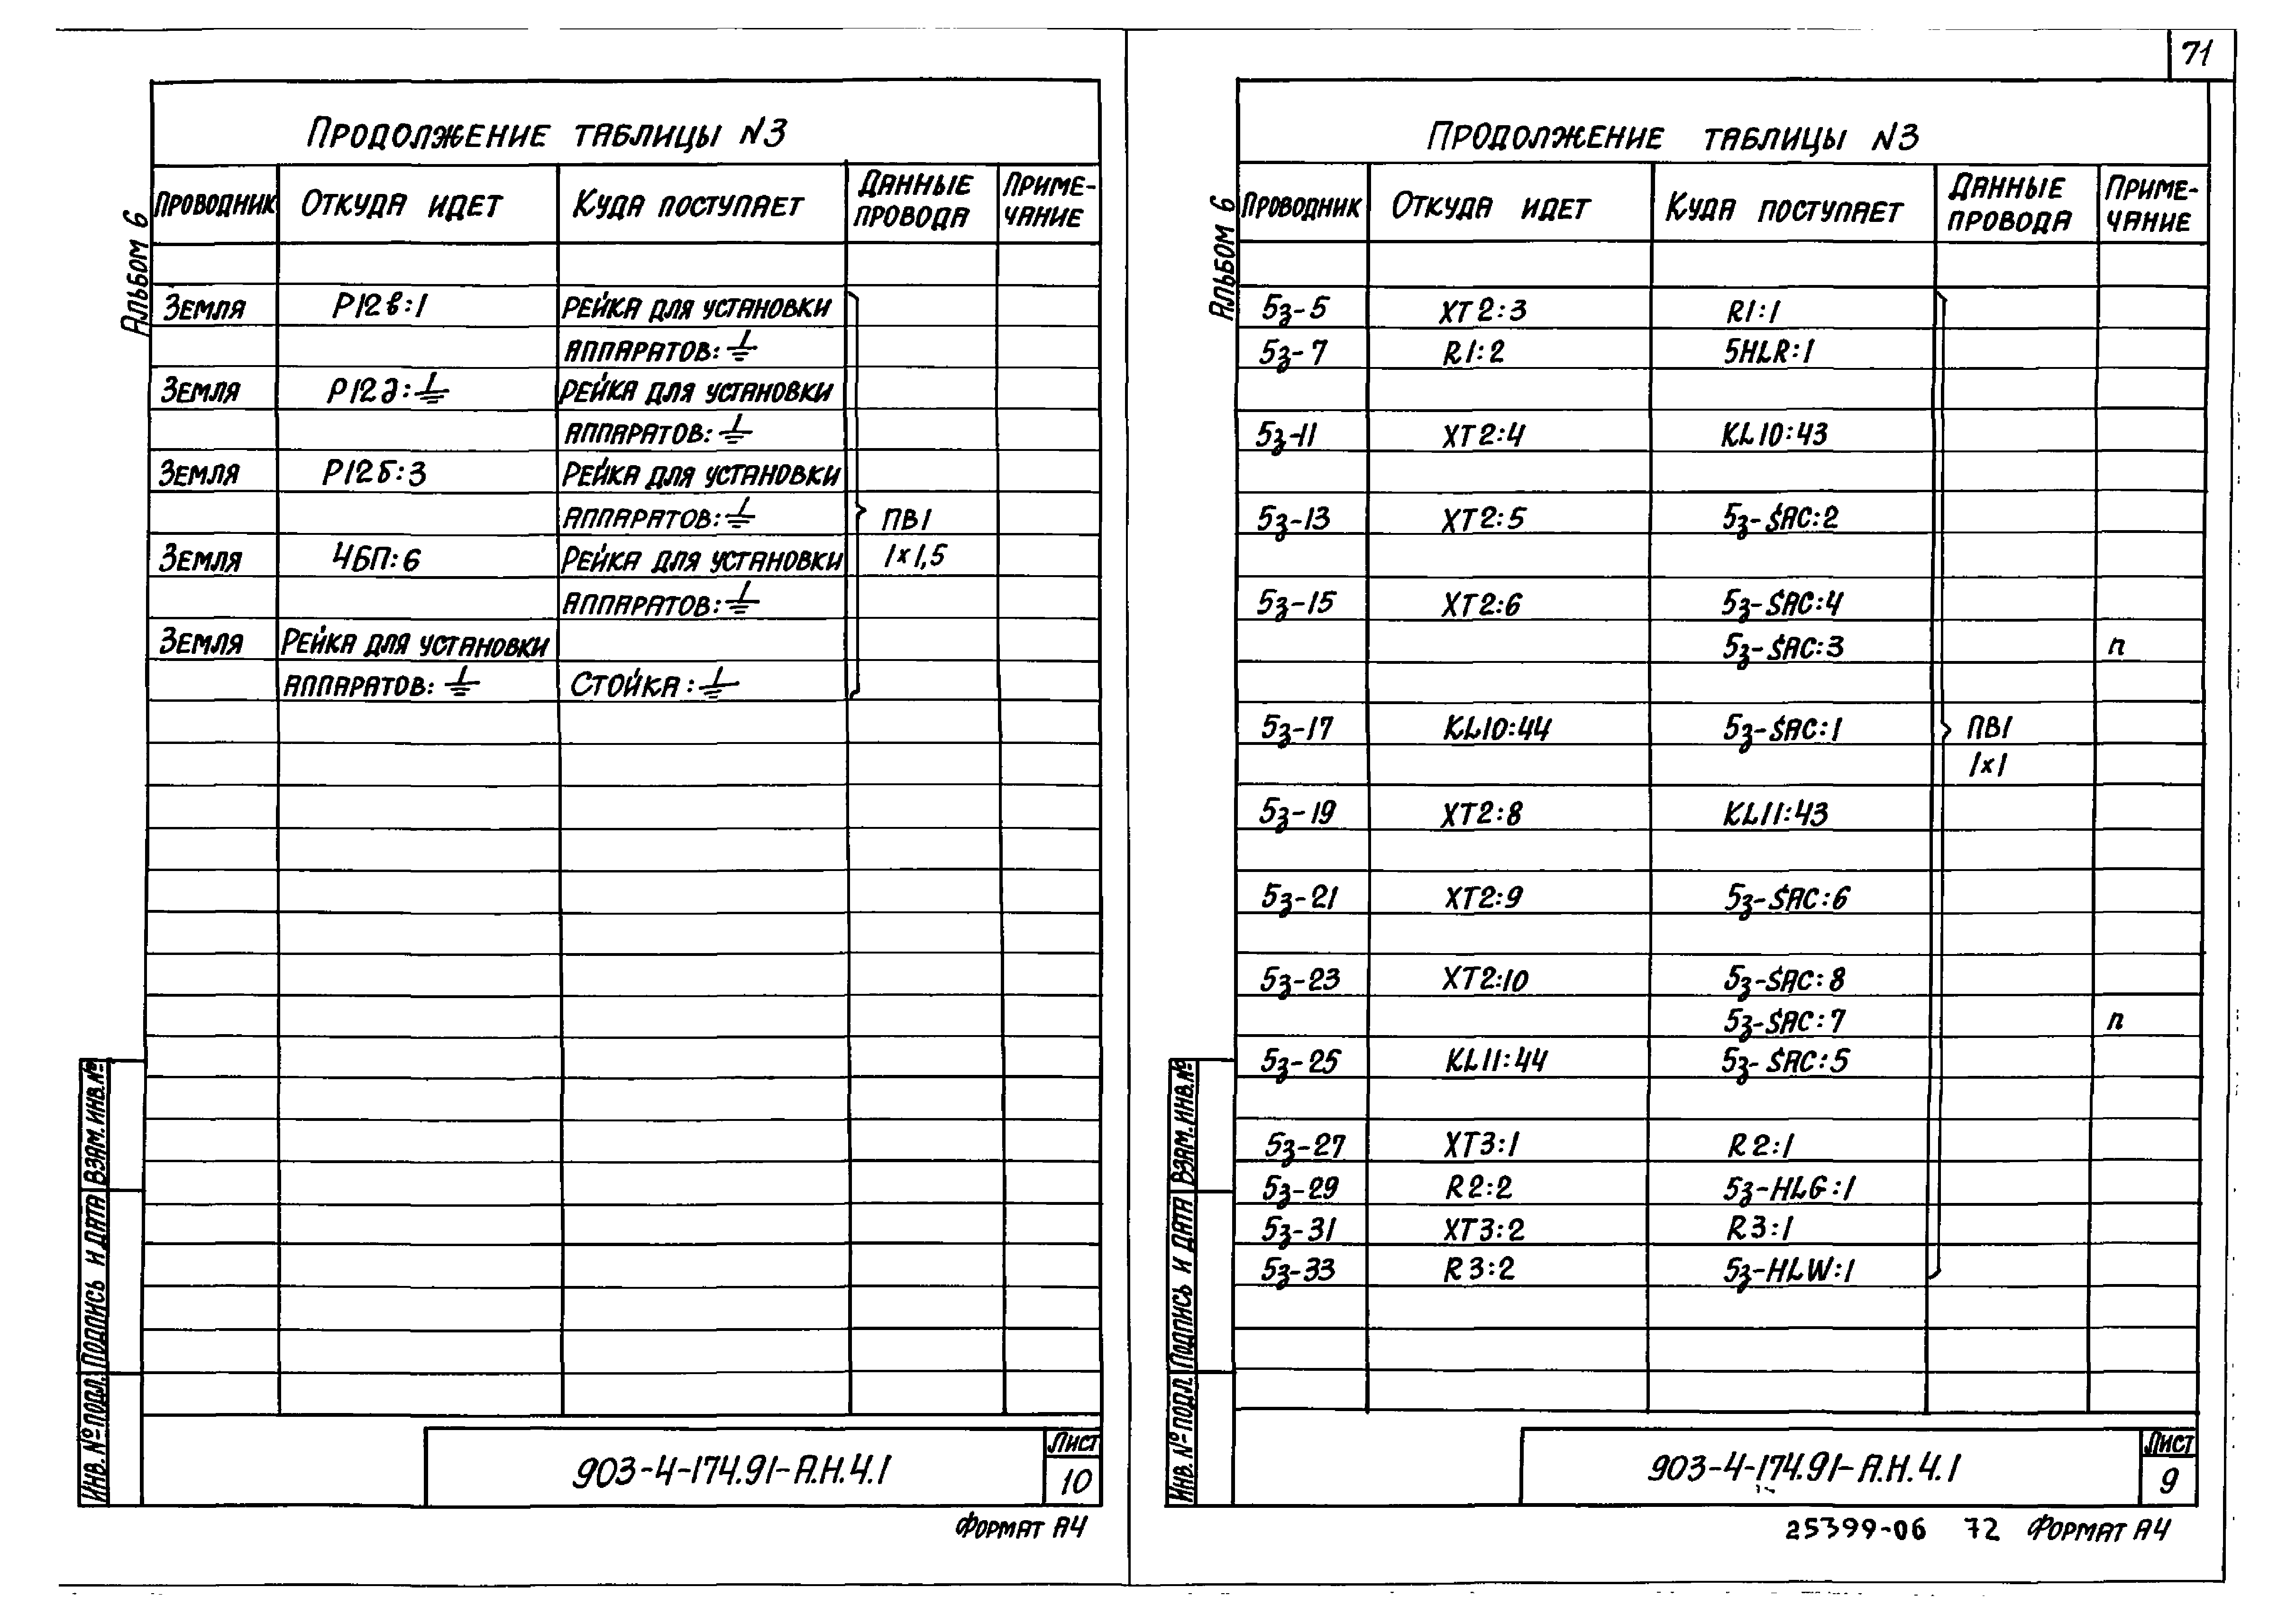 71
Продолжение таблицы N3
Проводник Откуда идет Куда поступает Данные провода Приме-чание
Земля Р12в:1 Рейка для установки
аппаратов:⏚
Земля Р12д:⏚ Рейка для установки
аппаратов:⏚
Земля Р12б:3 Рейка для установки
аппаратов:⏚ ПВ1
Земля 4БП:6 Рейка для установки 1×1,5
аппаратов:⏚
Земля Рейка для установки
аппаратов:⏚ Стойка:⏚
Альбом 6
Взам. инв. №
Подпись и дата
Инв. № подл.
903-4-174.91-А.Н.4.1
Лист
10
Формат А4
Продолжение таблицы N3
Проводник Откуда идет Куда поступает Данные провода Приме-чание
5з-5 XT2:3 R1:1
5з-7 R1:2 5HLR:1
5з-11 XT2:4 KL10:43
5з-13 XT2:5 5з-SAC:2
5з-15 XT2:6 5з-SAC:4
5з-SAC:3 п
5з-17 KL10:44 5з-SAC:1 ПВ1
1×1
5з-19 XT2:8 KL11:43
5з-21 XT2:9 5з-SAC:6
5з-23 XT2:10 5з-SAC:8
5з-SAC:7 п
5з-25 KL11:44 5з-SAC:5
5з-27 XT3:1 R2:1
5з-29 R2:2 5з-HLG:1
5з-31 XT3:2 R3:1
5з-33 R3:2 5з-HLW:1
Альбом 6
Взам. инв. №
Подпись и дата
Инв. № подл.
903-4-174.91-А.Н.4.1
Лист
9
25399-06 72 Формат А4